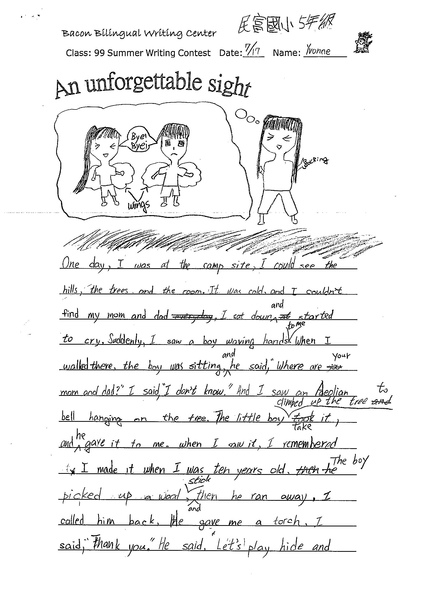 民富國小 5年級
Bacon Bilingual Writing Center
Class: 99 Summer Writing Contest Date: 7/17 Name: Yvonne
An unforgettable sight
Bye!
Bye!
wings
One day, I was at the camp site, I could see the
hills, the trees and the room. It was cold and I couldn't
and
find my mom and dad I sat down started
to me
to cry. Suddenly, I saw a boy waving hands when I
and your
walked there, the boy was sitting, he said, "Where are
mom and dad?" I said "I don't know." And I saw an Aeolian to
climbed up the tree and
bell hanging on the tree. The little boy took it,
take
he
and gave it to me. when I saw it, I remembered
I made it when I was ten years old. then he The boy
stick
picked up a wood, then he ran away. I
and
called him back. He gave me a torch. I
said, "Thank you." He said. "Let's play hide and